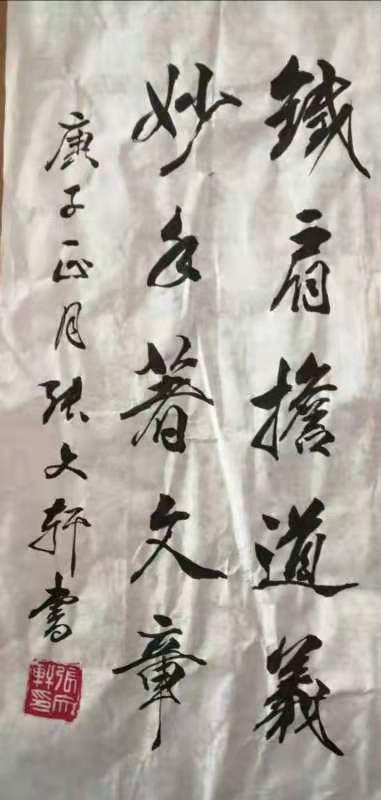 鐵肩擔道義
妙手著文章
庚子正月張文軒書
張文軒印